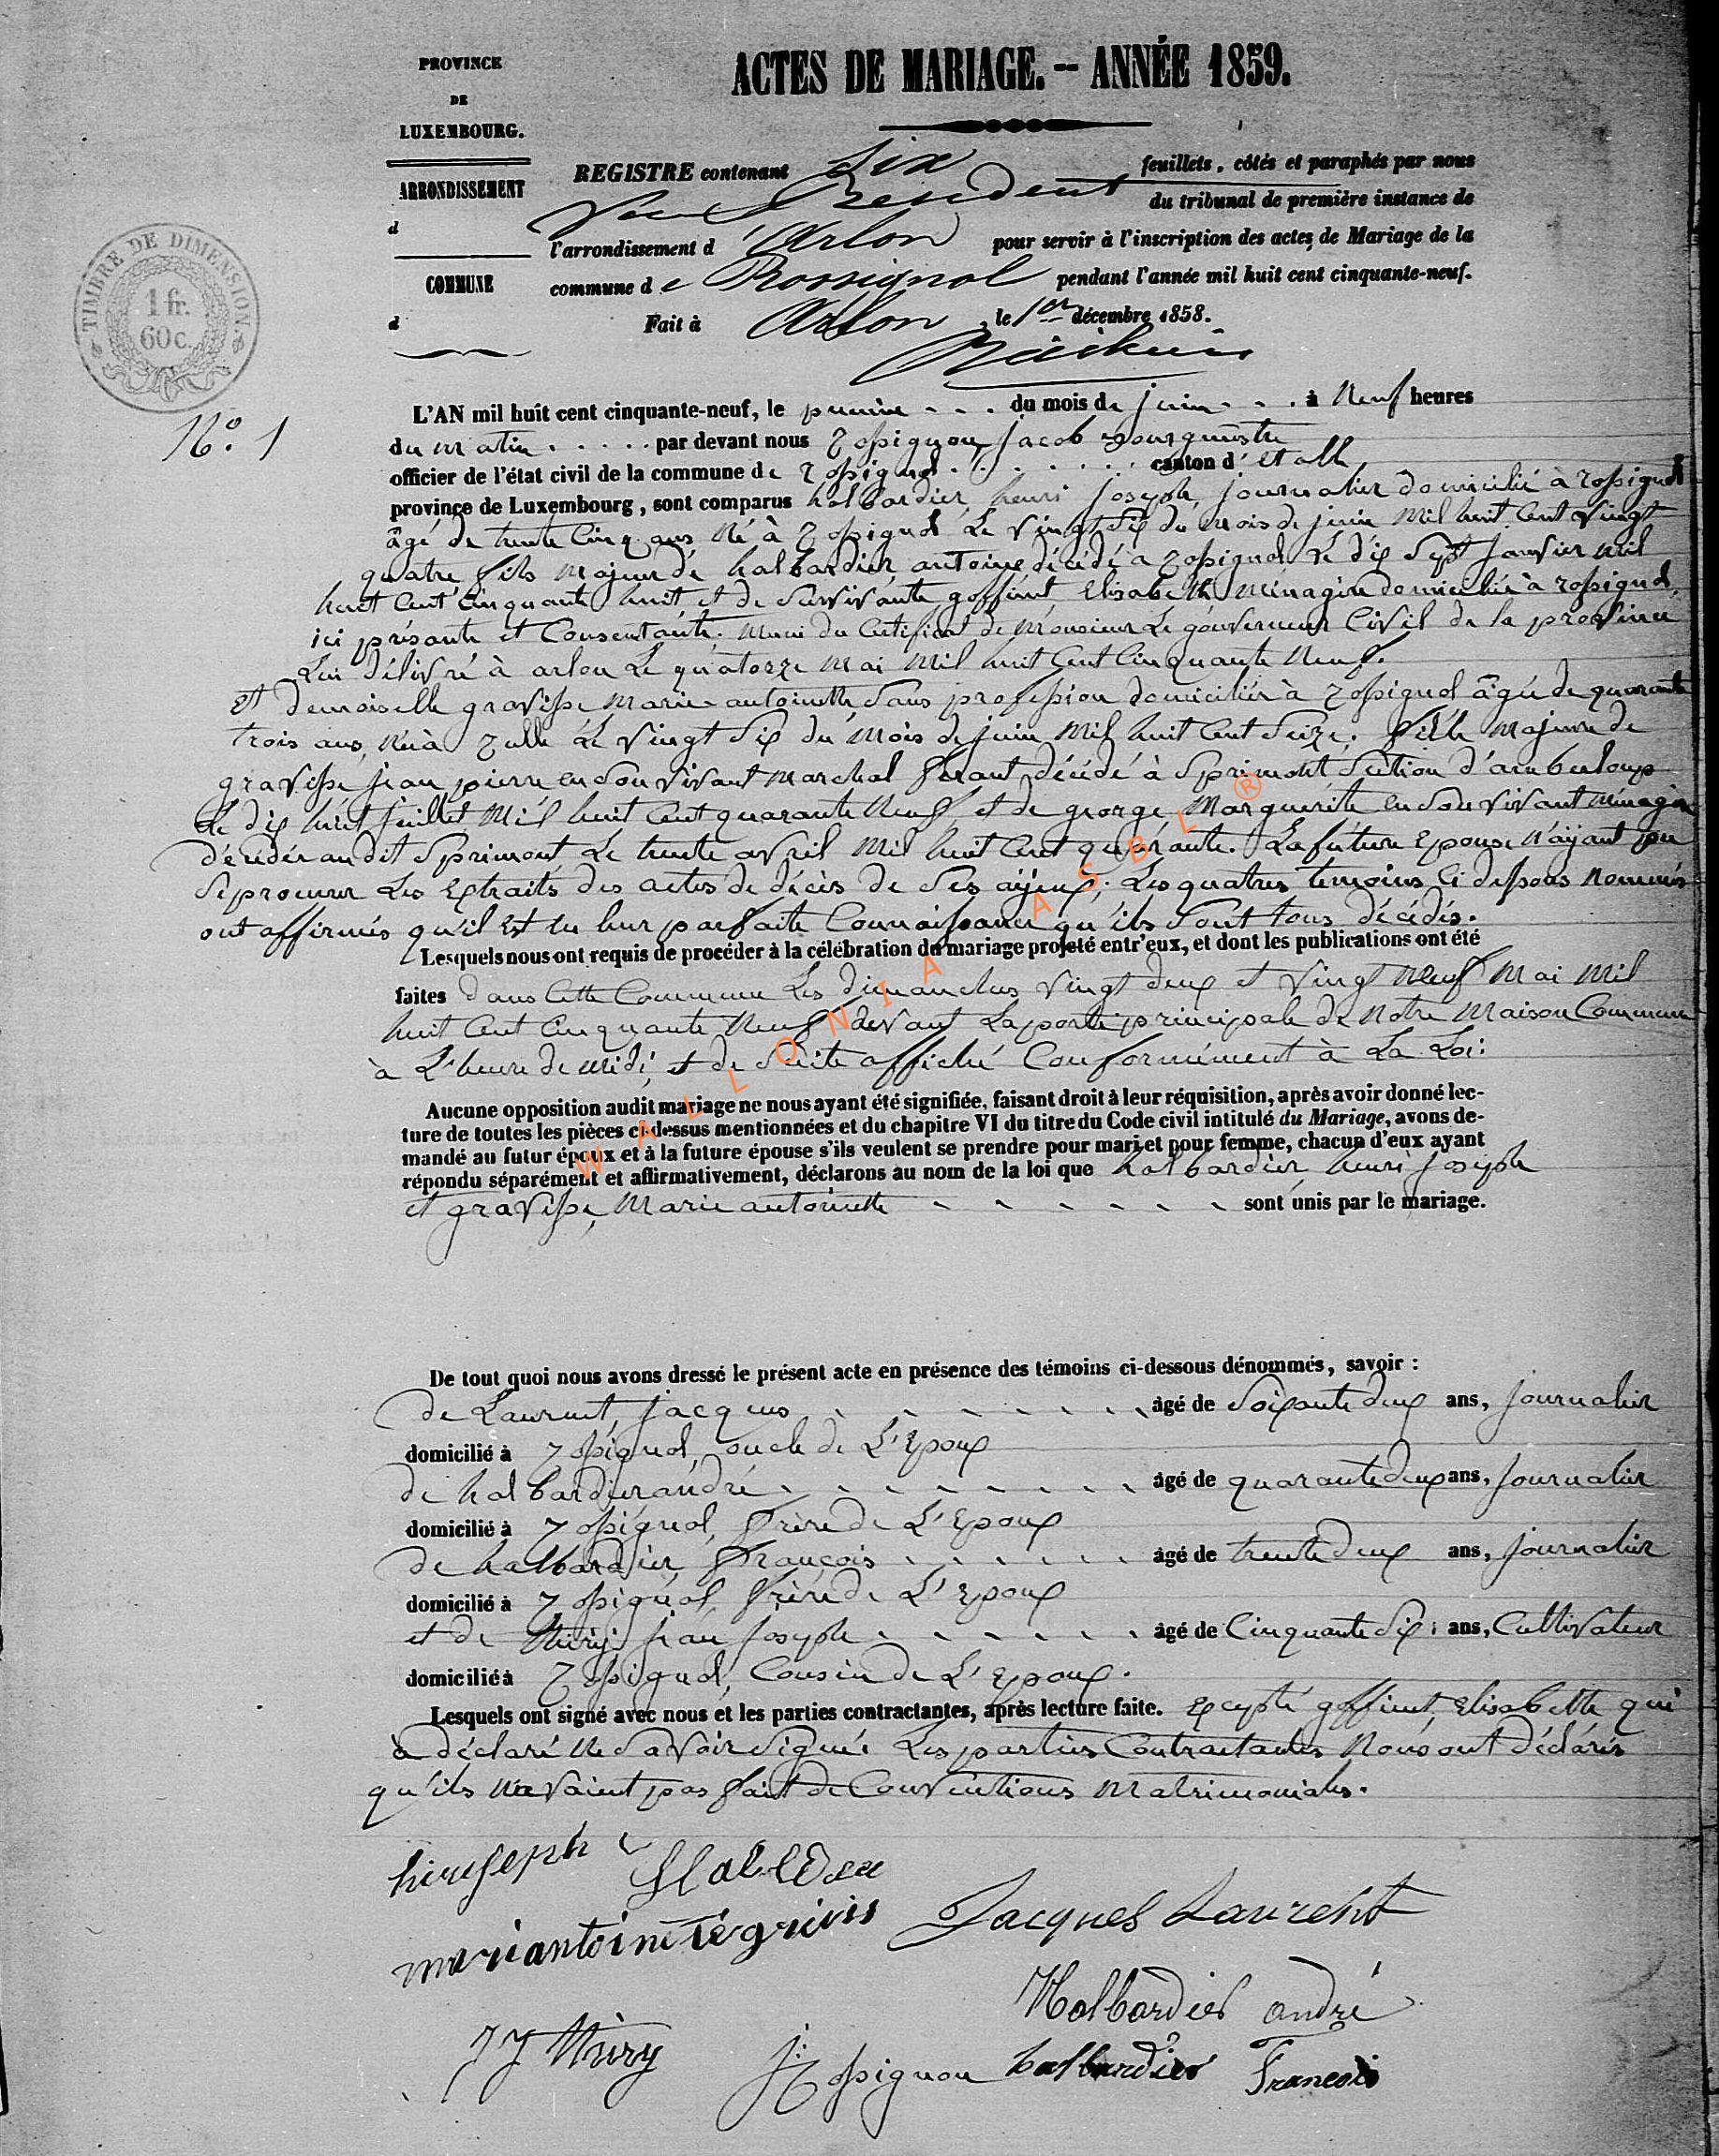 PROVINCE
DE
LUXEMBOURG.
ARRONDISSEMENT
d
COMMUNE
d
TIMBRE DE DIMENSION.
1 fr.
60 c.
ACTES DE MARIAGE. -- ANNÉE 1859.
REGISTRE contenant Six feuillets, côtés et paraphés par nous
President du tribunal de première instance de
l'arrondissement d'Arlon pour servir à l'inscription des actes de Mariage de la
commune de Rossignol pendant l'année mil huit cent cinquante-neuf.
Fait à Arlon, le 1er décembre 1858.
No. 1
L'AN mil huit cent cinquante-neuf, le premier du mois de juin à Neuf heures
du matin par devant nous rossignon, jacob Bourguestre
officier de l'état civil de la commune de rossignol canton d'Etalle,
province de Luxembourg, sont comparus halbardier, henri joseph, journalier domicilié à rossignol
âgé de trente Cinq ans Né à rossignol Le vingt Six du Mois de juin Mil huit Cent vingt
quatre fils majeur de halbardier antoine décédé à rossignol Le dix Sept Janvier Mil
huit Cent Cinquante huit et de Survivante goffinet Elisabeth Ménagère domiciliée à rossignol,
ici présante et Consentante. Muni du Certificat de Monsieur Le gouverneur Civil de la province
Lui délivré à arlon Le quatorze Mai Mil huit Cent Cinquante Neuf.
Et Demoiselle gravisse Marie antoinette Sans profession domiciliée à rossignol âgée de quarante
trois ans, Née à rulle Le vingt Six du Mois de juin Mil huit Cent Seize. fille Majeure de
gravisse jean pierre en Son vivant Marchal ferant décédé à Sprimont Section d'amberloup
Le dix huit juillet Mil huit Cent quarante Neuf et de george Marguerite en Son vivant Ménagère
décédée audit Sprimont Le trente avril Mil huit Cent quarante. La future Epouse N'ayant pu
Se procurer Les Extraits des actes de décès de Ses aÿeux. Les quatres temoins Ci dessous Nommés
ont affirmés qu'il Est en leur parfaite Connaissance qu'ils Sont tous décédés.
Lesquels nous ont requis de procéder à la célébration du mariage projeté entr'eux, et dont les publications ont été
faites dans Cette Commune Les dimanches vingt deux et vingt Neuf Mai Mil
huit Cent Cinquante Neuf devant La porte principale de Notre Maison Commune
à L'heure de midi, et de Suite affiché Conformément à La Loi:
Aucune opposition audit mariage ne nous ayant été signifiée, faisant droit à leur réquisition, après avoir donné lec-
ture de toutes les pièces ci-dessus mentionnées et du chapitre VI du titre du Code civil intitulé du Mariage, avons de-
mandé au futur époux et à la future épouse s'ils veulent se prendre pour mari et pour femme, chacun d'eux ayant
répondu séparément et affirmativement, déclarons au nom de la loi que halbardier henri joseph
et gravisse, Marie antoinette sont unis par le mariage.
De tout quoi nous avons dressé le présent acte en présence des témoins ci-dessous dénommés, savoir :
de Laurent, jacques âgé de Soixante deux ans, journalier
domicilié à rossignol, oncle de L'Epoux
de halbardier andré âgé de quarante deux ans, journalier
domicilié à rossignol, frère de L'Epoux
de halbardier, françois âgé de trente deux ans, journalier
domicilié à rossignol, frère de L'Epoux
et de thiry jean joseph âgé de Cinquante Six ans, Cultivateur
domicilié à rossignol, Cousin de L'Epoux.
Lesquels ont signé avec nous et les parties contractantes, après lecture faite. Excepté goffinet, Elisabette qui
a déclaré Ne Savoir Signé. Les parties Contractantes Nous ont déclarés
qu'ils Navaient pas fait de Conventions Matrimoniales.
mariantoinete grivis
Jacques Laurent
Halbardier andré
J J thiry
J. rossignon
halbardier François
WALLONIA ASBL ®